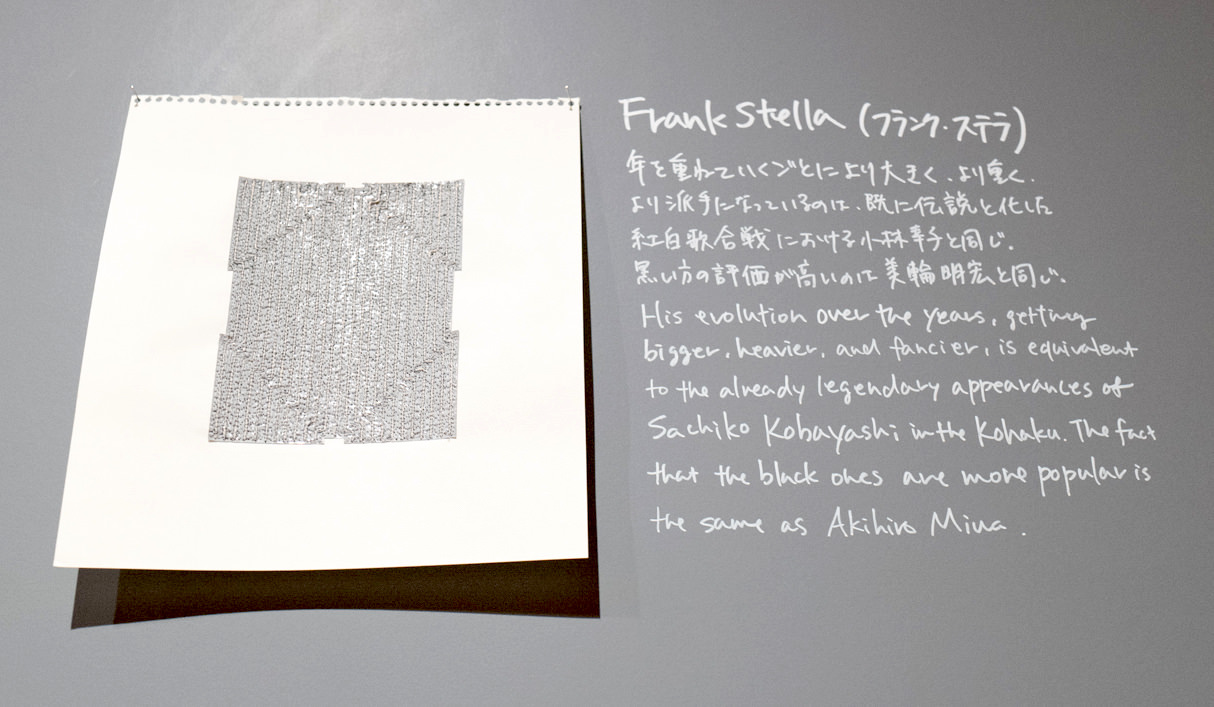 Frank Stella (フランク・ステラ)
年を重ねていくごとにより大きく、より重く、
より派手になっているのは、既に伝説と化した
紅白歌合戦における小林幸子と同じ。
黒い方の評価が高いのは美輪明宏と同じ。
His evolution over the years, getting
bigger, heavier, and fancier, is equivalent
to the already legendary appearances of
Sachiko Kobayashi in the Kohaku. The fact
that the black ones are more popular is
the same as Akihiro Miwa.